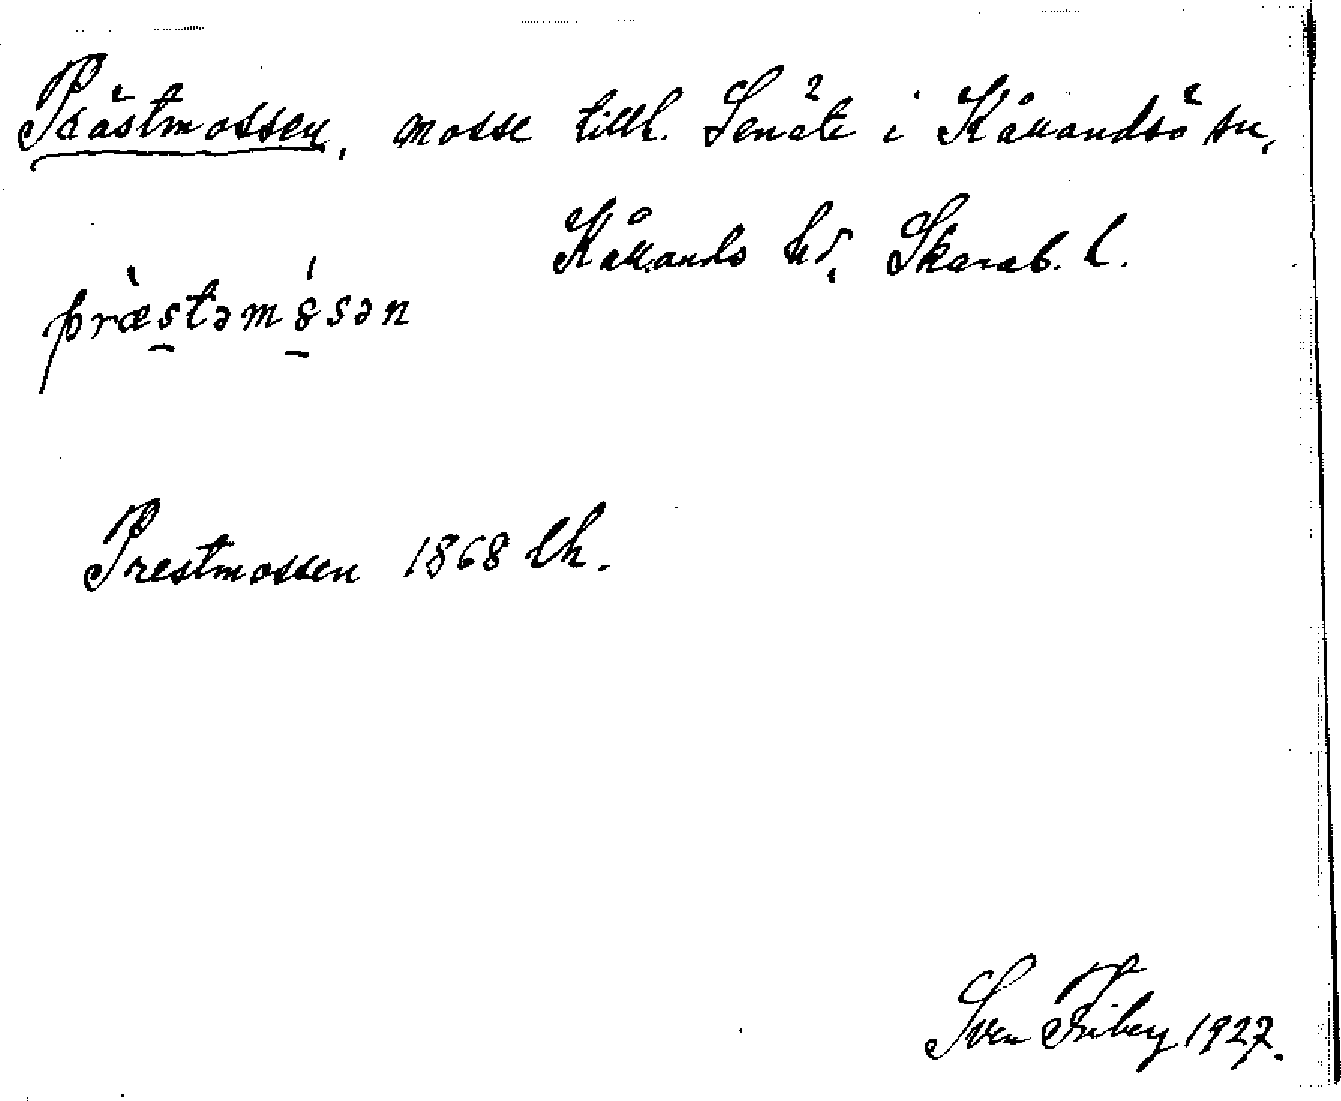 Prästmossen, mosse tillh. Senäte i Kållandsö sn,
Kållands hd, Skarab. l.
præstəmósən
Prestmossen 1868 lk.
Sven Friberg 1927.